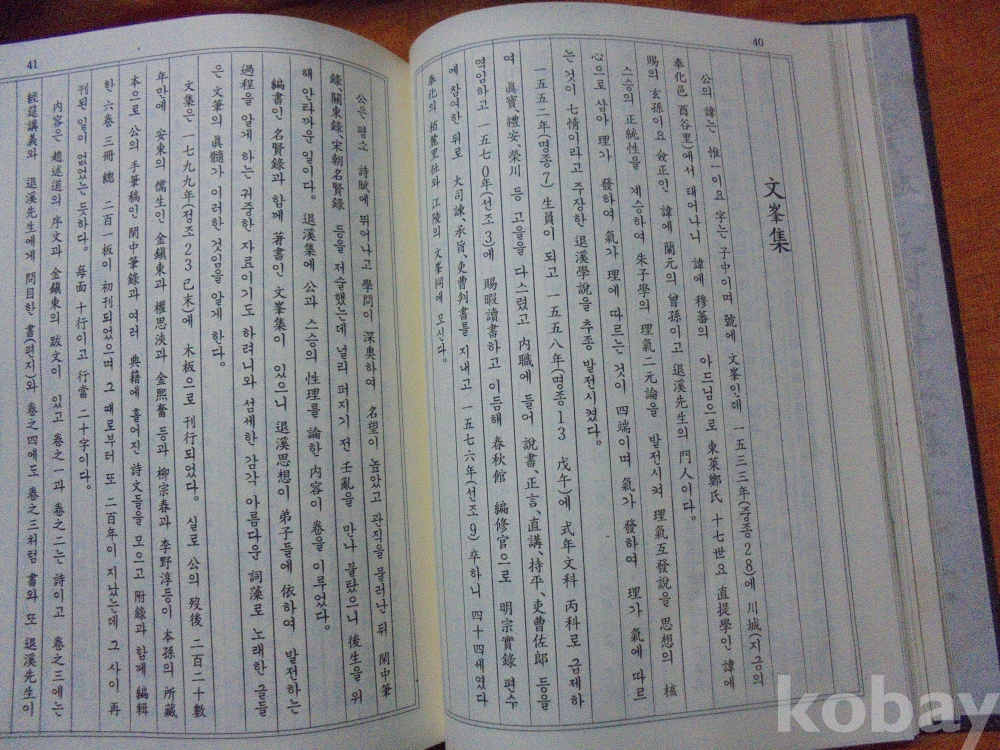 40
文峯集
公의 諱는 惟一이요 字는 子中이며 號에 文峯인데 一五三三年(중종28)에 川城(지금의
奉化邑 酉谷里)에서 태어나니 諱에 穆蕃의 아드님으로 東萊鄭氏 十七世요 直提學인 諱에
賜의 玄孫이요 僉正인 諱에 蘭元의 曾孫이고 退溪先生의 門人이다.
스승의 正統性을 계승하여 朱子學의 理氣二元論을 발전시켜 理氣互發說을 思想의 核
心으로 삼아 理가 發하여 氣가 理에 따르는 것이 四端이며 氣가 發하여 理가 氣에 따르
는 것이 七情이라고 주장한 退溪學說을 추종 발전시켰다.
一五五二年(명종7) 生員이 되고 一五五八年(명종13 戊午)에 式年文科 丙科로 급제하
여 眞寶、禮安、榮川 등 고을을 다스렸고 内職에 들어 說書、正言、直講、持平、吏曹佐郎 등을
역임하고 一五七0年(선조3)에 賜暇讀書하고 이듬해 春秋館 編修官으로 明宗實錄 편수
에 참여한 뒤로 大司諫、承旨、吏曹判書를 지내고 一五七六年(선조9) 卒하니 四十四세였다
奉化의 栢麓里社와 江陵의 文峯祠에 모신다.
41
公은 평소 詩賦에 뛰어나고 學問이 深奥하여 名望이 높았고 관직을 물러난 뒤 閑中筆
錄、關東錄、宋朝名賢錄 등을 저술했는데 널리 퍼지기 전 壬亂을 만나 불탔으니 後生을 위
해 안타까운 일이다. 退溪集에 公과 스승의 性理를 論한 内容이 卷을 이루었다.
編書인 名賢錄과 함께 著書인 文峯集이 있으니 退溪思想이 弟子들에 依하여 발전하는
過程을 알게 하는 귀중한 자료이기도 하려니와 섬세한 감각 아름다운 詞藻로 노래한 글들
은 文筆의 眞髓가 이러한 것임을 알게 한다.
文集은 一七九九年(정조23 己未)에 木板으로 刊行되었다. 실로 公의 歿後 二百二十數
年만에 安東의 儒生인 金鎭東과 權思浹과 金熙奮 등과 柳宗春과 李野淳등이 本孫의 所藏
本으로 公의 手筆稿인 閑中筆錄과 여러 典籍에 흩어진 詩文들을 모으고 附錄과 함께 編輯
한 六卷 三冊 總 二百一板이 初刊되었으며 그 때로부터 또 二百年이 지났는데 그 사이 再
刊된 일이 없었는 듯하다. 每面 十行이고 行當 二十字이다.
内容은 趙述道의 序文과 金鎭東의 跋文이 있고 卷之一과 卷之二는 詩이고 卷之三에는
經筵講義와 退溪先生에게 問目한 書(편지)와 卷之四에도 卷之三처럼 書와 또 退溪先生이
kobay